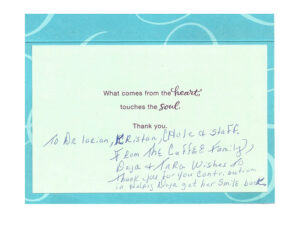 What comes from the heart,
touches the soul.
Thank you.
To Dr Lorian, Kristan, Nole & staff
From The Caffee Family,
Daja & Tara Wishes to
Thank you for you Contribution
in Helping Daja get her Smile back